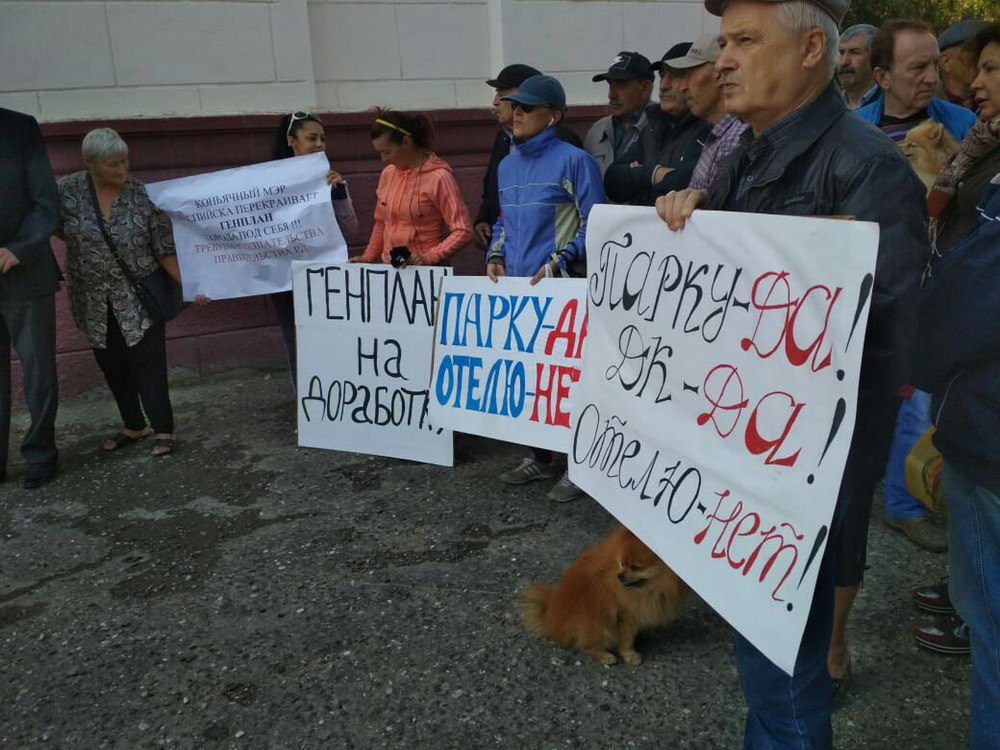 КОНЬЯЧНЫЙ МЭР
ПЕРЕКРАИВАЕТ
ГЕНПЛАН
ПОД СЕБЯ!!!
ПРАВИТЕЛЬСТВА Р.Д.
ГЕНПЛАН
на
ПАРКУ-ДА
ОТЕЛЮ-НЕ
Парку-Да!
ДК-Да!
Отелю-Нет!